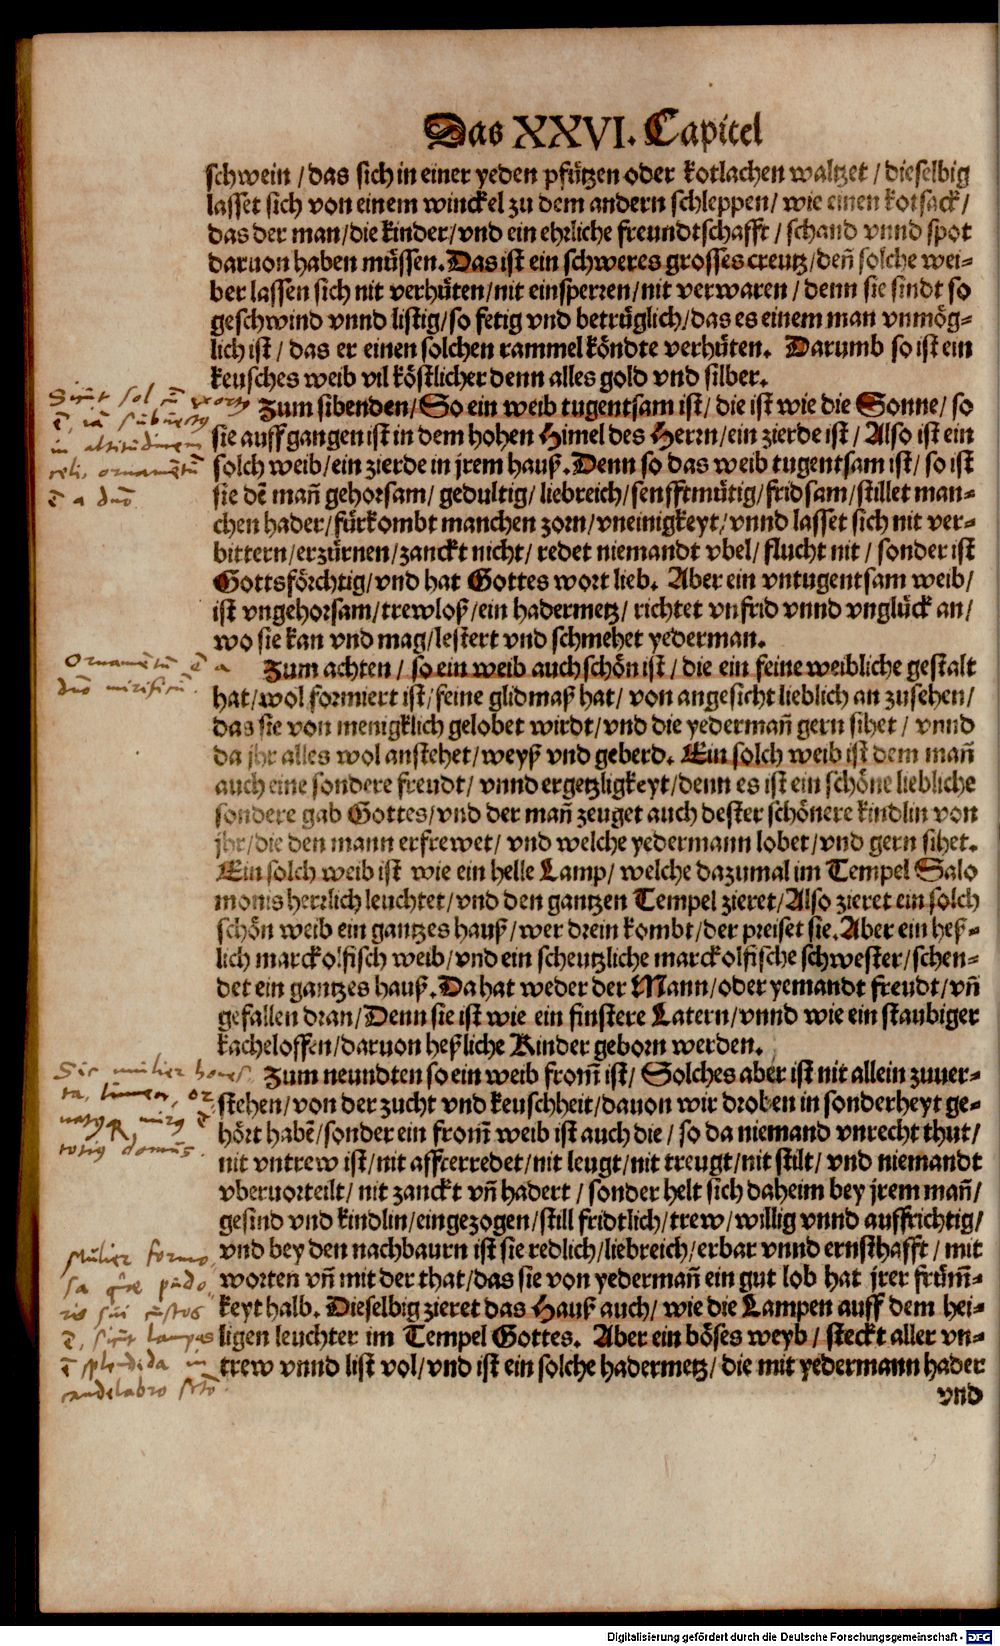 Das XXVI. Capitel
schwein / das sich in einer yeden pfützen oder kotlachen waltzet / dieselbig
lasset sich von einem winckel zu dem andern schleppen / wie einen kotsack /
das der man / die kinder / vnd ein ehrliche freundtschafft / schand vnnd spot
daruon haben müssen. Das ist ein schweres grosses creutz / deñ solche wei-
ber lassen sich nit verhüten / nit einsperren / nit verwaren / denn sie sindt so
geschwind vnnd listig / so fetig vnd betrüglich / das es einem man vnmög-
lich ist / das er einen solchen rammel köndte verhüten. Darumb so ist ein
keusches weib vil köstlicher denn alles gold vnd silber.
Zum sibenden / So ein weib tugentsam ist / die ist wie die Sonne / so
sie auffgangen ist in dem hohen Himel des Herrn / ein zierde ist / Also ist ein
solch weib / ein zierde in jrem hauß. Denn so das weib tugentsam ist / so ist
sie dẽ mañ gehorsam / gedultig / liebreich / senfftmütig / fridsam / stillet man-
chen hader / fürkombt manchen zorn / vneinigkeyt / vnnd lasset sich nit ver-
bittern / erzürnen / zanckt nicht / redet niemandt vbel / flucht nit / sonder ist
Gottsförchtig / vnd hat Gottes wort lieb. Aber ein vntugentsam weib /
ist vngehorsam / trewloß / ein hadermetz / richtet vnfrid vnnd vnglück an /
wo sie kan vnd mag / lestert vnd schmehet yederman.
Zum achten / so ein weib auch schön ist / die ein feine weibliche gestalt
hat / wol formiert ist / feine glidmaß hat / von angesicht lieblich an zusehen /
das sie von menigklich gelobet wirdt / vnd die yedermañ gern sihet / vnnd
da jhr alles wol anstehet / weyß vnd geberd. Ein solch weib ist dem mañ
auch eine sondere freudt / vnnd ergetzligkeyt / denn es ist ein schöne liebliche
sondere gab Gottes / vnd der mañ zeuget auch dester schönere kindlin von
jhr / die den mann erfrewet / vnd welche yedermann lobet / vnd gern sihet.
Ein solch weib ist wie ein helle Lamp / welche dazumal im Tempel Salo
monis herrlich leuchtet / vnd den gantzen Tempel zieret / Also zieret ein solch
schön weib ein gantzes hauß / wer drein kombt / der preiset sie. Aber ein heß-
lich marckolfisch weib / vnd ein scheutzliche marckolfische schwester / schen-
det ein gantzes hauß. Da hat weder der Mann / oder yemandt freudt / vñ
gefallen dran / Denn sie ist wie ein finstere Latern / vnnd wie ein staubiger
kacheloffen / daruon heßliche Kinder geborn werden.
Zum neundten so ein weib from̃ ist / Solches aber ist nit allein zuuer-
stehen / von der zucht vnd keuschheit / dauon wir droben in sonderheyt ge-
hört habẽ / sonder ein from̃ weib ist auch die / so da niemand vnrecht thut /
nit vntrew ist / nit affterredet / nit leugt / nit treugt / nit stilt / vnd niemandt
vberuorteilt / nit zanckt vñ hadert / sonder helt sich daheim bey jrem mañ /
gesind vnd kindlin / eingezogen / still fridtlich / trew / willig vnnd auffrichtig /
vnd bey den nachbaurn ist sie redlich / liebreich / erbar vnnd ernsthafft / mit
worten vñ mit der that / das sie von yedermañ ein gut lob hat jrer früm̃-
keyt halb. Dieselbig zieret das Hauß auch / wie die Lampen auff dem hei-
ligen leuchter im Tempel Gottes. Aber ein böses weyb / steckt aller vn-
trew vnnd list vol / vnd ist ein solche hadermetz / die mit yedermann hader
vnd
Sicut sol
in altitudinem
celi, ornamētū
ē a dno
Ornamētū ē a
dno mirificū.
Sic mulier hones
ta,
totius domus.
Mulier formo
sa
ris sui custos
ē, sicut lampas
ē splendida in
candelabro sctō.
Digitalisierung gefördert durch die Deutsche Forschungsgemeinschaft - DFG